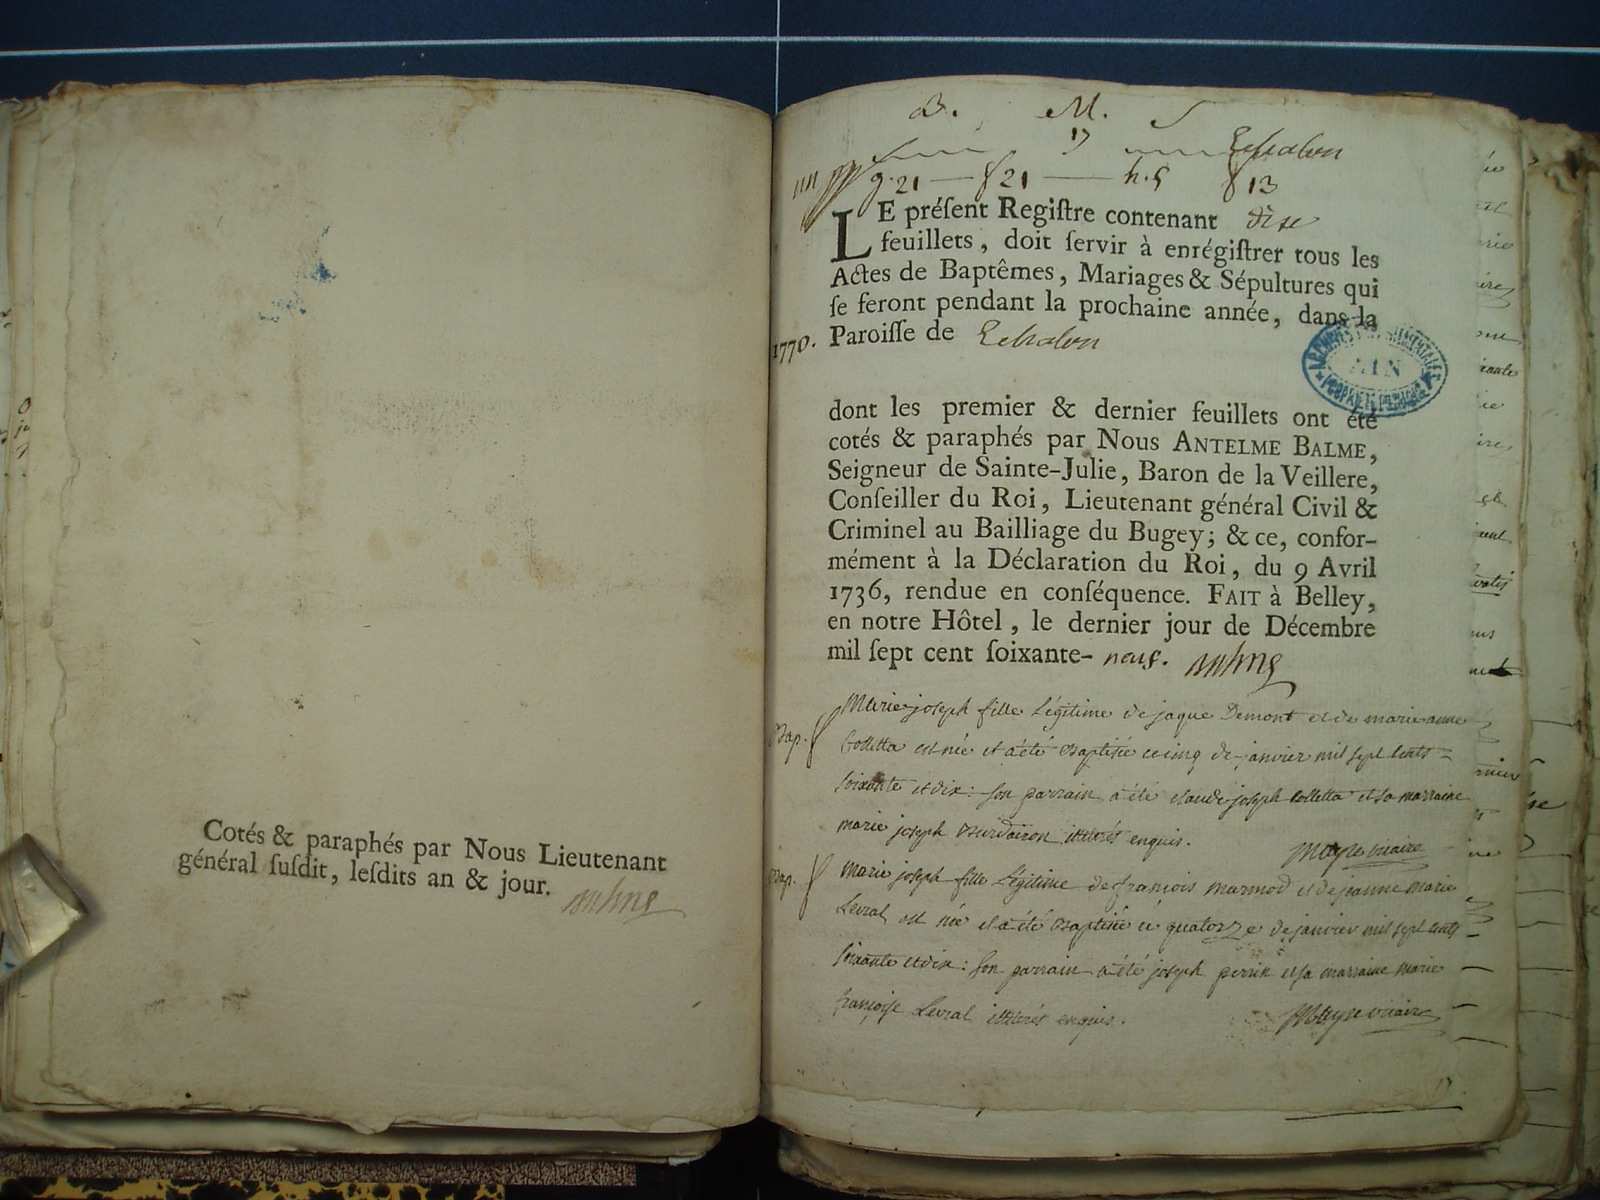 Cotés & paraphés par Nous Lieutenant
général ſuſdit, leſdits an & jour.
B. M. S
17 Echalon
g. 21 — f 21 — h. 5 f 13
LE préſent Regiſtre contenant dix
feuillets, doit ſervir à enrégiſtrer tous les
Actes de Baptêmes, Mariages & Sépultures qui
ſe feront pendant la prochaine année, dans la
1770. Paroiſſe de Echalon
AIN
dont les premier & dernier feuillets ont été
cotés & paraphés par Nous ANTELME BALME,
Seigneur de Sainte-Julie, Baron de la Veillere,
Conſeiller du Roi, Lieutenant général Civil &
Criminel au Bailliage du Bugey; & ce, confor-
mément à la Déclaration du Roi, du 9 Avril
1736, rendue en conſéquence. FAIT à Belley,
en notre Hôtel, le dernier jour de Décembre
mil ſept cent ſoixante-neuf.
Marie joseph fille Légitime de jaque Demont et de marie anne
Bap. Colletta est née et a été Baptisée ce cinq de janvier mil sept cents
soixante et dix: son parrain a été claude joseph Colletta et sa marraine
marie joseph illitérés enquis.
Bap. marie joseph fille Légitime de françois marmod et de jeanne marie
Levral est née et a été Baptisée ce quatorze de janvier mil sept cents
soixante et dix: son parrain a été joseph perrin et sa marraine marie
françoise Levral illitérés enquis. vicaire